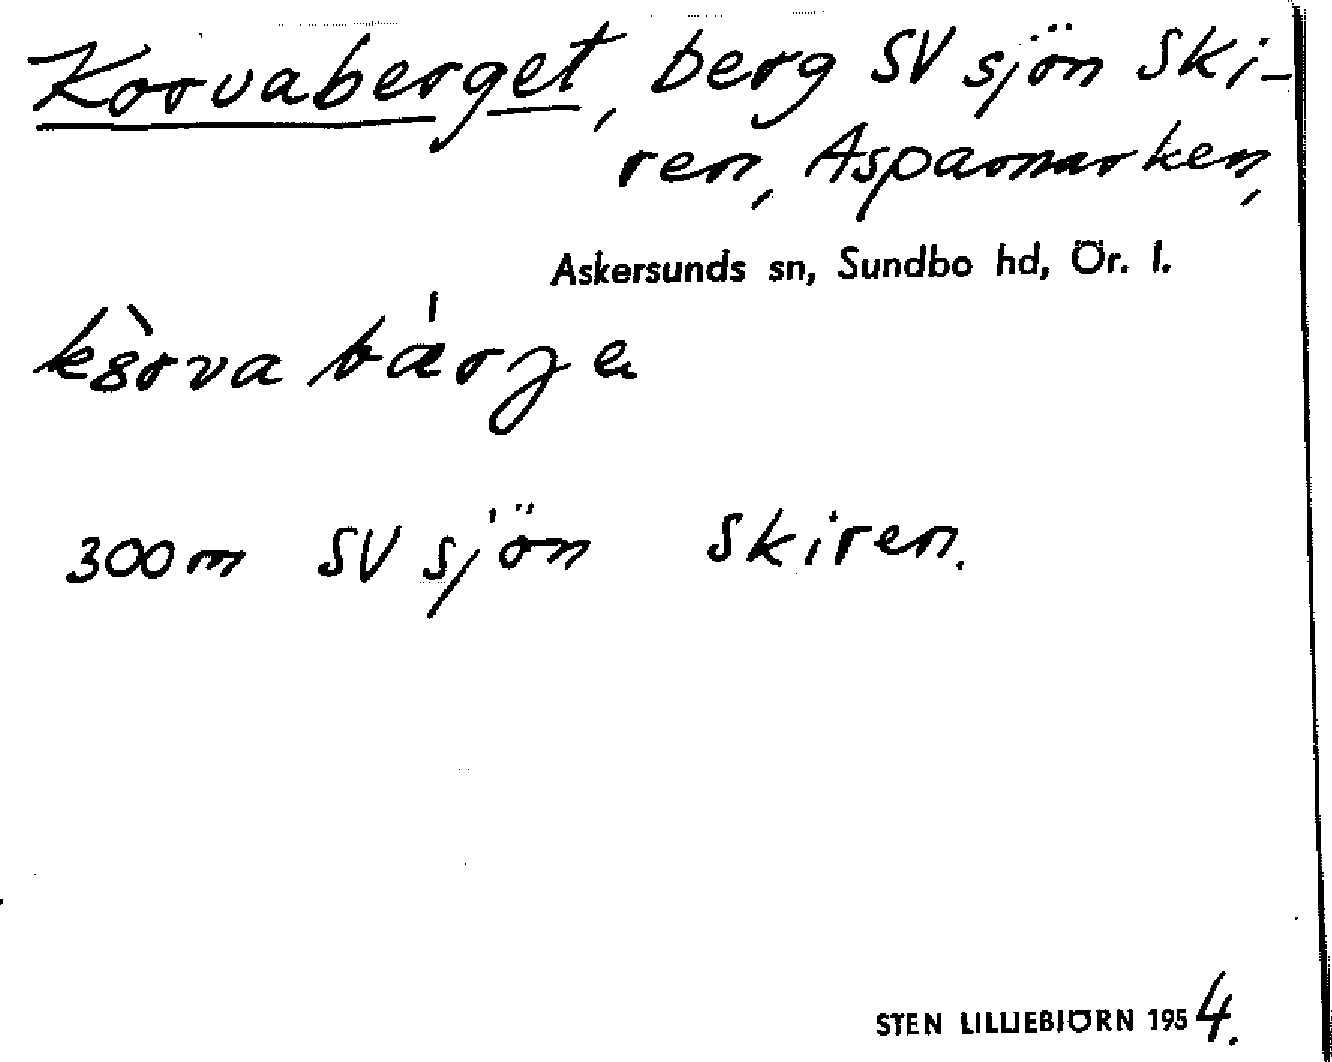 Korvaberget, berg SV sjön Ski-
ren, Asparmarken,
Askersunds sn, Sundbo hd, Ör. l.
300 m SV sjön Skiren.
STEN LILLIEBJÖRN 1954.